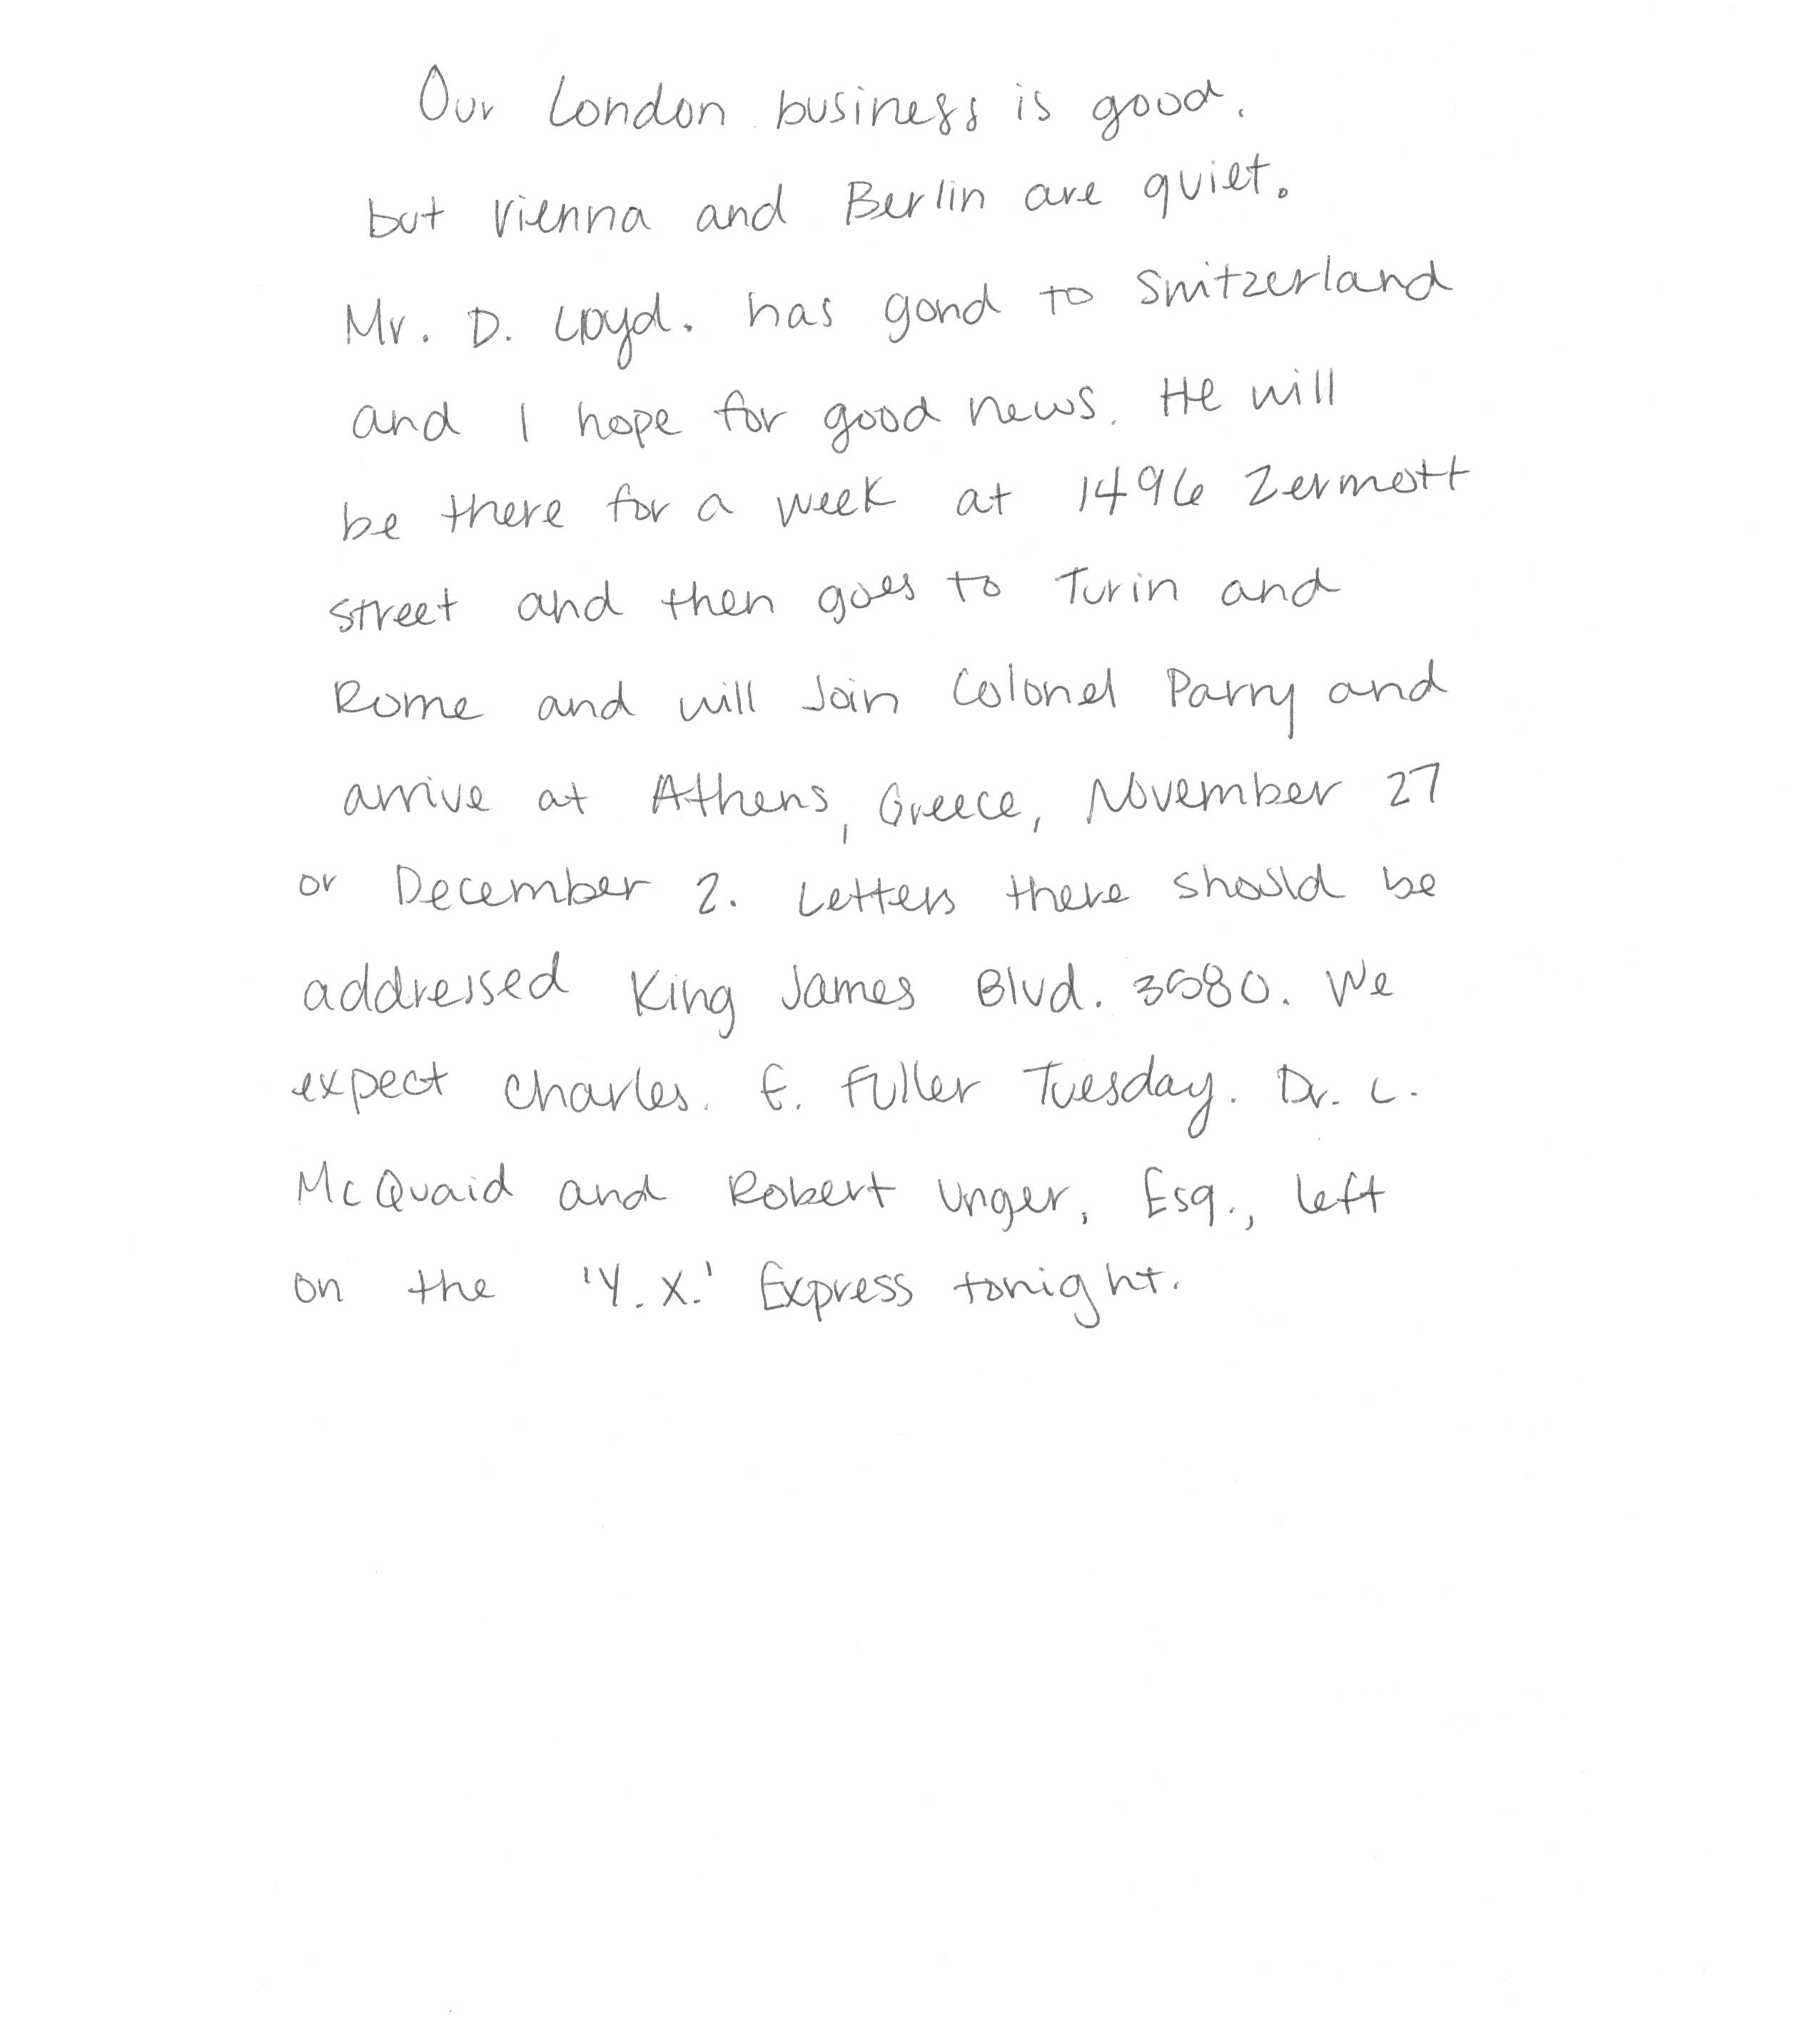 Our London business is good.
but Vienna and Berlin are quiet.
Mr. D. Loyd. has gond to Switzerland
and I hope for good news. He will
be there for a week at 1496 Zermott
street and then goes to Turin and
Rome and will Join Colonel Parry and
arrive at Athens, Greece, November 27
or December 2. Letters there should be
addressed King James Blvd. 3580. We
expect Charles. E. Fuller Tuesday. Dr. L.
McQuaid and Robert Unger, Esq., left
on the 'Y.X.' Express tonight.